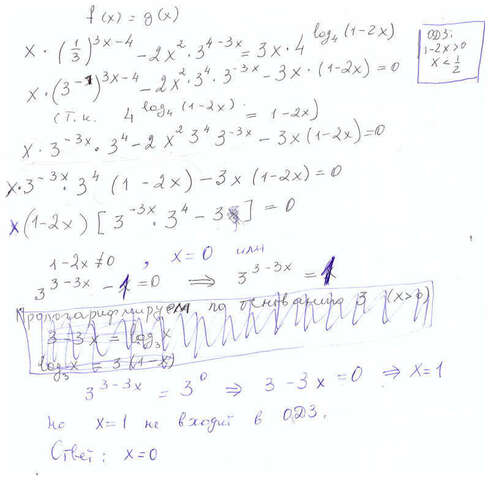 f(x) = g(x)
x · (1/3)^(3x-4) - 2x² · 3^(4-3x) = 3x · 4^(log₄(1-2x))
ОДЗ:
1-2x>0
x < 1/2
x · (3^(-1))^(3x-4) - 2x² · 3⁴ · 3^(-3x) - 3x · (1-2x) = 0
(Т.к. 4^(log₄(1-2x)) = 1-2x)
x · 3^(-3x) · 3⁴ - 2x² 3⁴ 3^(-3x) - 3x(1-2x) = 0
x · 3^(-3x) · 3⁴ (1 - 2x) - 3x(1-2x) = 0
x(1-2x) [3^(-3x) · 3⁴ - 3] = 0
1-2x ≠ 0, x = 0 или
3^(3-3x) - 1 = 0 ⇒ 3^(3-3x) = 1
Прологарифмируем по основанию 3 (x>0)
3 - 3x = log₃x
log₃x = 3(1-x)
3^(3-3x) = 3⁰ ⇒ 3 - 3x = 0 ⇒ x = 1
Но x=1 не входит в ОДЗ.
Ответ: x=0